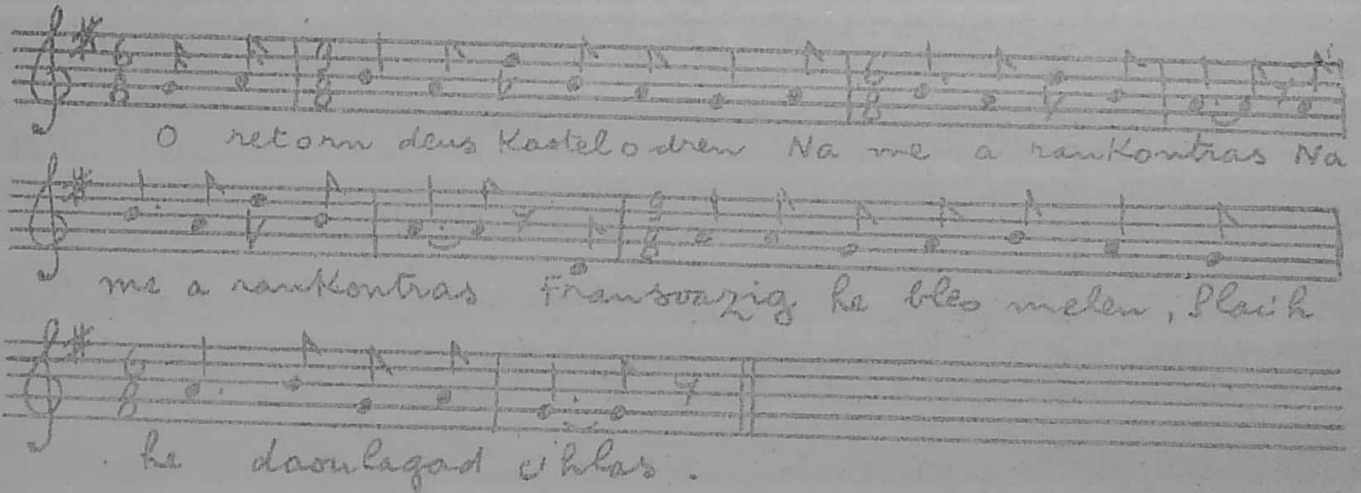 O retorn deus Kastelodren Na me a rankontras Na
me a rankontras Fransvazig he bleo melen, Plac'h
he daoulagad c'hlas.